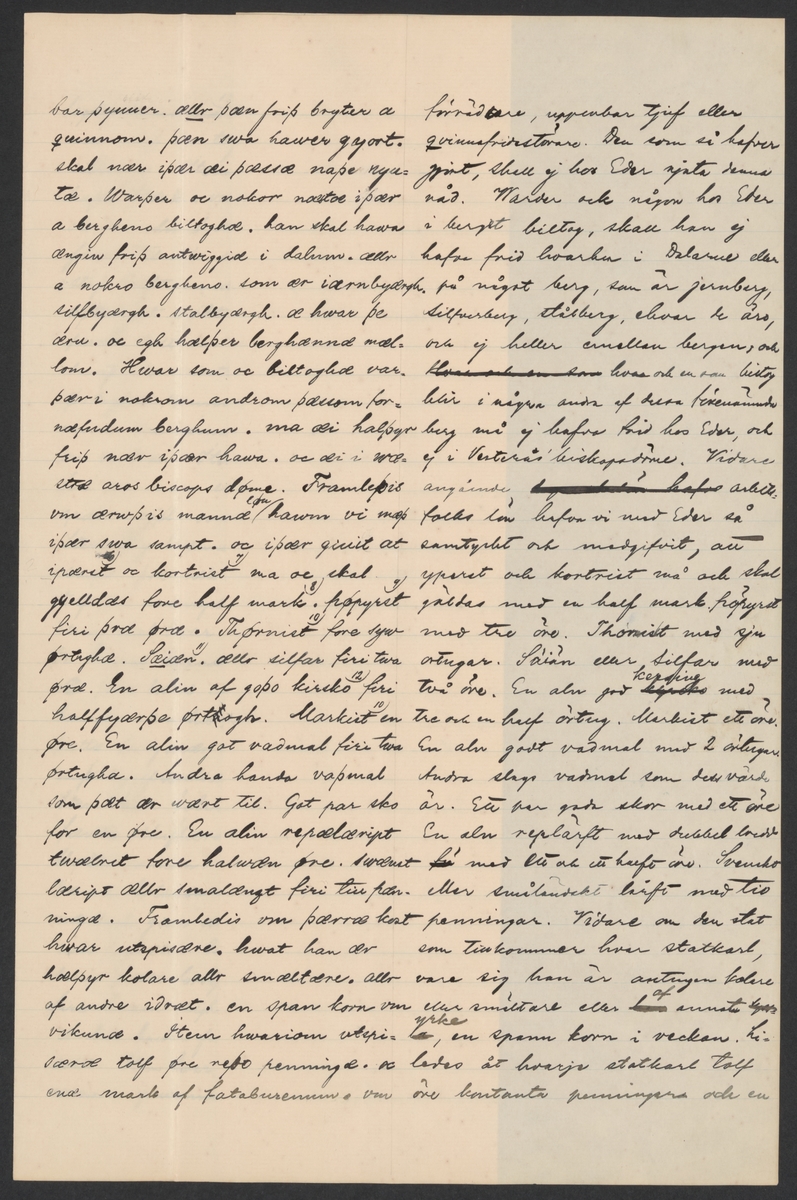 bar þyuuer. ællr þæn friþ bryter a
quinnom. þæn swa hawer gyort.
skal nær iþær æi þæssæ naþe nyu-
tæ. Warþer oc nokor nætæ iþær
a bergheno biltoghæ. han skal hawa
ængin friþ antwiggiæ i dalum. ællr
a nokro bergheno. som ær iærnbyærgh.
silfbyærgh. stalbyærgh. æ hwar þe
æru. oc egh hælþer berghænnæ mæl-
lom. Hwar som oc biltoghæ var-
þær i nokrom androm þæssom for-
næfndum berghum. ma æi halþyr
friþ nær iþær hawa. oc æi i wæ-
stræ aros biscops døme. Framleþis
vm ærwþis mannæ løn hawm vi mæþ
iþær swa sampt. oc iþær giuit at
iþæret oc kortrist ma oc skal
gyelldæs fore half mark. þøpyrst
firi þræ øræ. Thørnist fore syw
ørtughæ. Sæiæn. ællr silfar firi twa
øræ. En alin af goþo kirsko firi
halffyærþe ørtogh. Markist en
øre. En alin got vaðmal firi twa
ørtugha. Andra handa vaþmal
som þæt ær wært til. Got par sko
for en øre. En alin repælæript
twælret fore halwæn øre. swænst
læript ællr smalænzt firi tiu pæn-
ningæ. Frambedis vm þærræ kost
hwar utspisære. hwat han ær
hælþyr kolare allr smæltære. allr
af andre idræt. en span korn vm
vikunæ. Item hwariom utspi-
særæ tolf øre reþo penningæ. oc
enæ mark af fataburenum. vm
förrädare, uppenbar tjuf eller
qvinnofridsstörare. Den som så hafver
gjort, skall ej hos Eder njuta denna
nåd. Warder ock någon hos Eder
i berget biltog, skall han ej
hafva frid hvarken i Dalarne eller
på något berg, som är jernberg,
silfverberg, stålberg, ehvar de äro,
och ej heller emellan bergen, och
hvar och en som biltog
blir i några andra af dessa förenämnda
berg må ej hafva frid hos Eder, och
ej i Vesterås biskopsdöme. Vidare
angående arbets-
folks lön hafva vi med Eder så
samtyckt och medgifvit, att
yperst och kortrist må och skal
gäldas med en half mark, þöpyrst
med tre öre. Thörnist med sju
örtugar. Säiän eller silfar med
två öre. En aln god kersing med
tre och en half örtug. Markist ett öre.
En aln godt vadmal med 2 örtugar.
Andra slags vadmal som dess värde
är. Ett par goda skor med ett öre
En aln replärft med dubbel bredd
med ett och ett halft öre. Svenskt
eller småländskt lärft med tio
penningar. Vidare om den stat
som tillkommer hvar statkarl,
vare sig han är antingen kolare
eller smältare eller af annat
yrke, en spann korn i veckan. Li-
ledes åt hvarje statkarl tolf
öre kontanta penningar och en